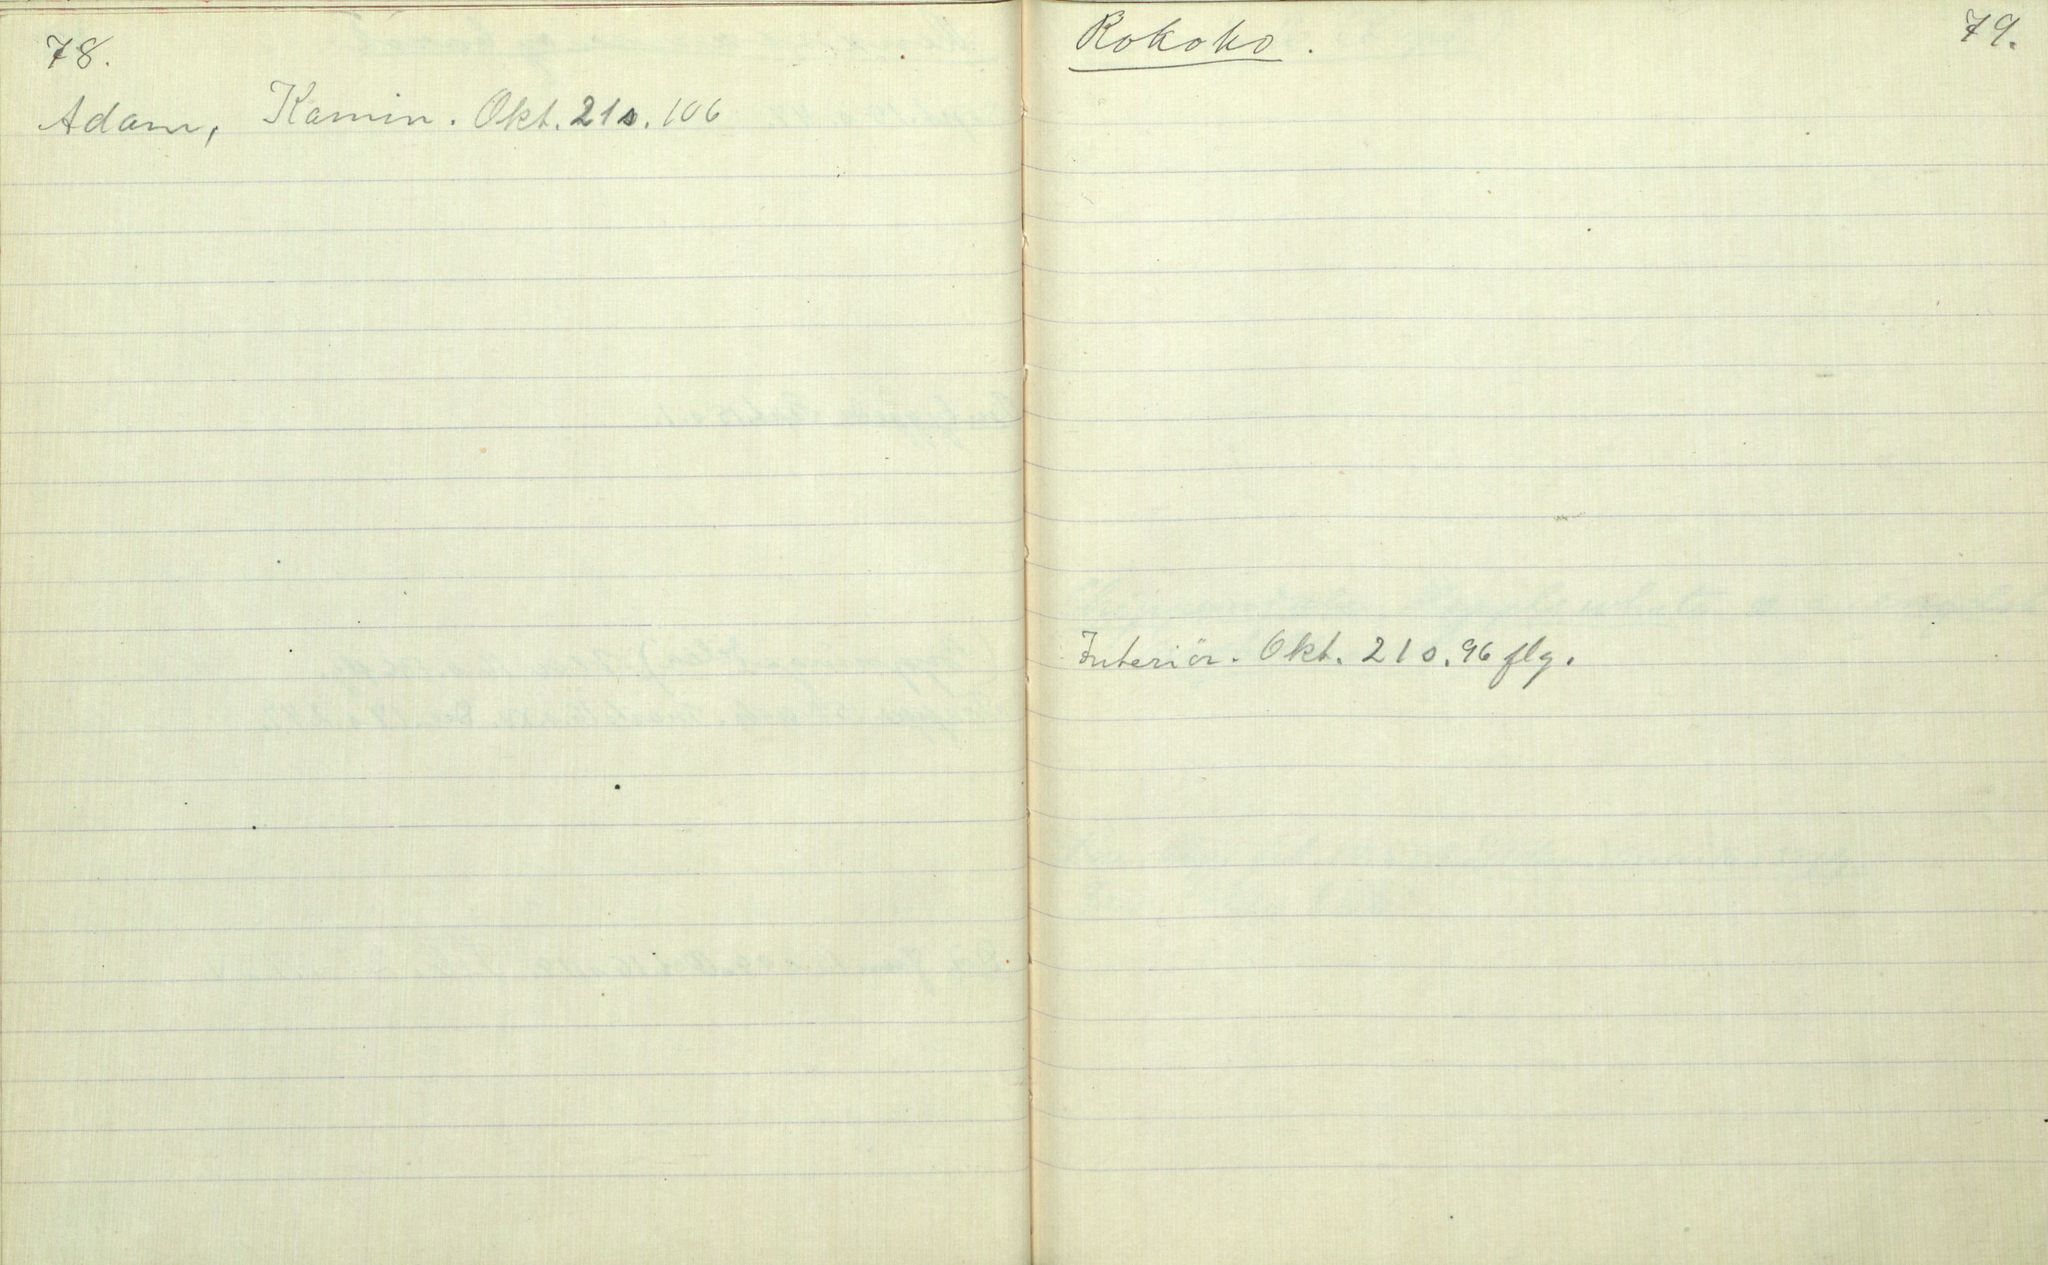 78.
Adam, Kamin. Okt. 21 s. 106
Rokoko.
79.
Interiör. Okt. 21 s. 96 flg.